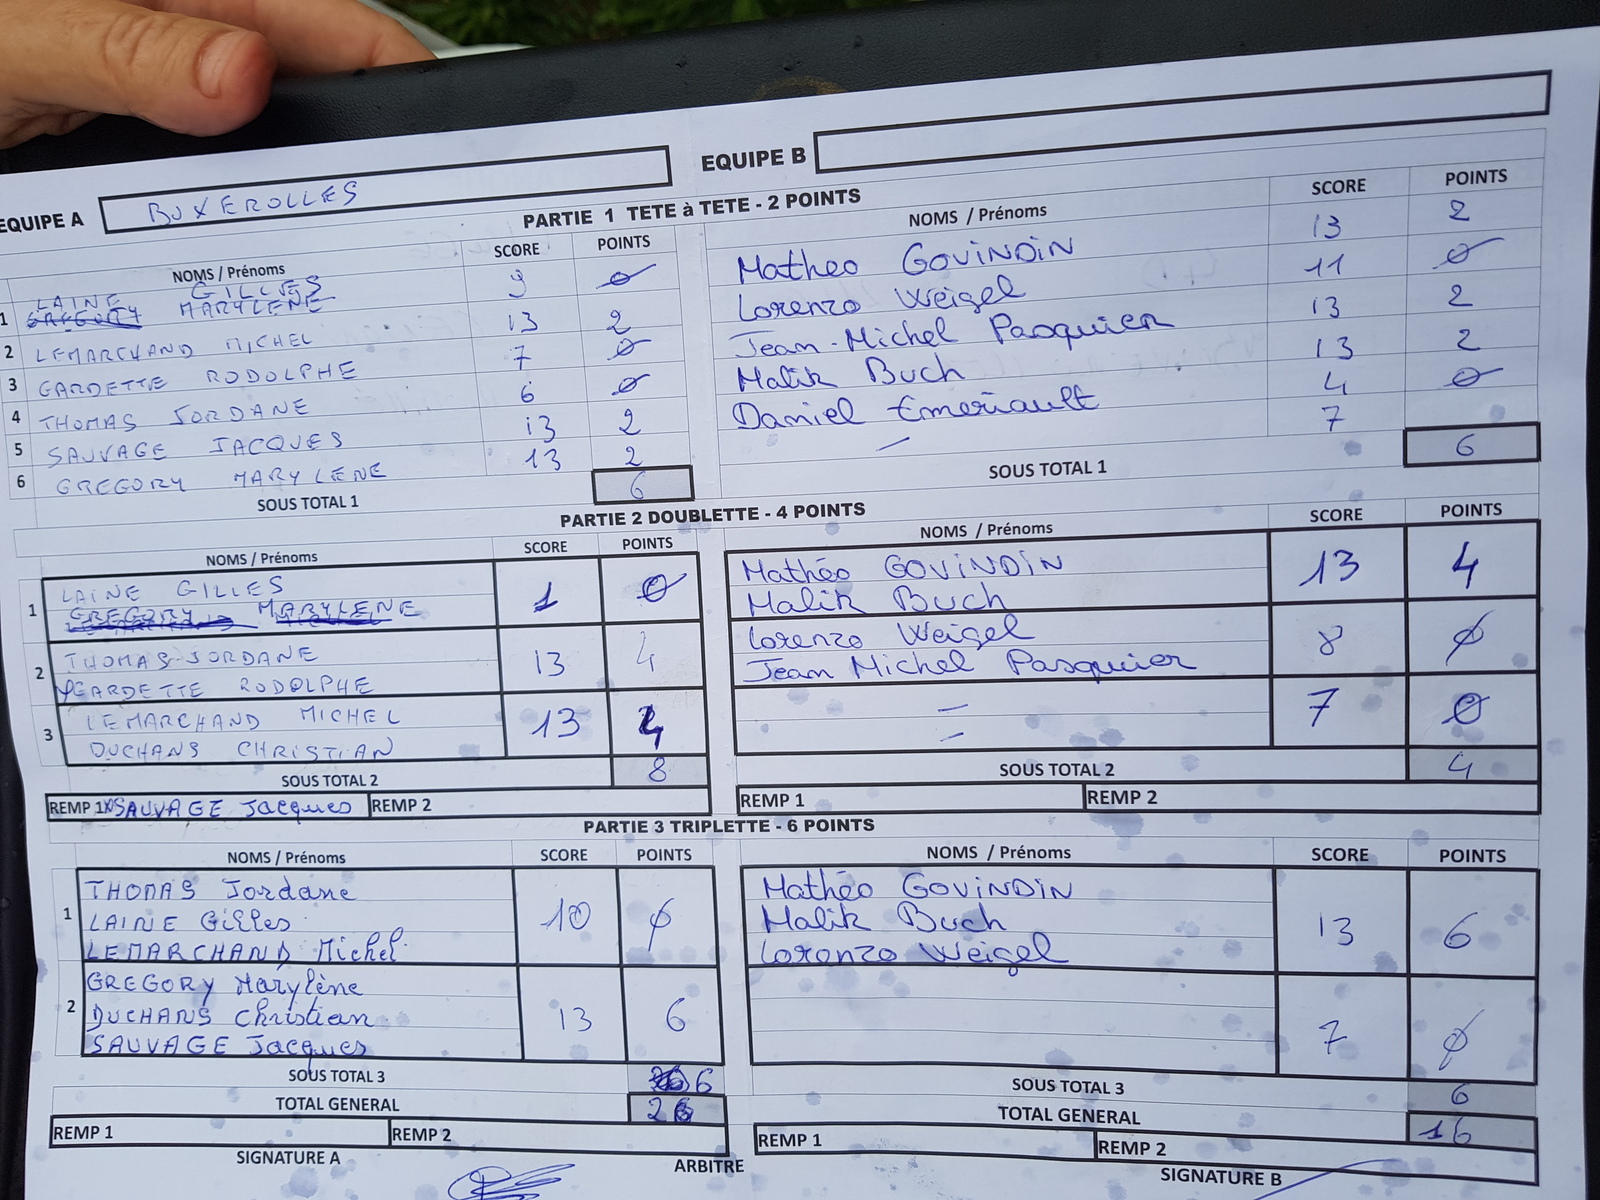 EQUIPE A BUXEROLLES EQUIPE B
PARTIE 1 TETE à TETE - 2 POINTS
NOMS / Prénoms SCORE POINTS NOMS / Prénoms SCORE POINTS
LAINE GILLES 9 0 Matheo GOVINDIN 13 2
1 GREGORY MARYLENE
2 LEMARCHAND MICHEL 13 2 Lorenzo Weigel 11 0
3 GARDETTE RODOLPHE 7 0 Jean-Michel Pasquier 13 2
4 THOMAS JORDANE 6 0 Malik Buch 13 2
5 SAUVAGE JACQUES 13 2 Daniel Emeriault 4 0
6 GREGORY MARYLENE 13 2 — 7
SOUS TOTAL 1 6 SOUS TOTAL 1 6
PARTIE 2 DOUBLETTE - 4 POINTS
NOMS / Prénoms SCORE POINTS NOMS / Prénoms SCORE POINTS
1 LAINE GILLES 1 0 Mathéo GOVINDIN 13 4
GREGORY MARYLENE Malik Buch
2 THOMAS JORDANE 13 4 Lorenzo Weigel 8 0
GARDETTE RODOLPHE Jean Michel Pasquier
3 LEMARCHAND MICHEL 13 4 — 7 0
DUCHANS CHRISTIAN —
SOUS TOTAL 2 8 SOUS TOTAL 2 4
REMP 1 SAUVAGE Jacques REMP 2 REMP 1 REMP 2
PARTIE 3 TRIPLETTE - 6 POINTS
NOMS / Prénoms SCORE POINTS NOMS / Prénoms SCORE POINTS
1 THOMAS Jordane 10 0 Mathéo GOVINDIN 13 6
LAINE Gilles Malik Buch
LEMARCHAND Michel Lorenzo Weigel
2 GREGORY Marylène 13 6 7 0
DUCHANS Christian
SAUVAGE Jacques
SOUS TOTAL 3 6 SOUS TOTAL 3 6
TOTAL GENERAL TOTAL GENERAL 16
REMP 1 REMP 2 REMP 1 REMP 2
SIGNATURE A ARBITRE SIGNATURE B